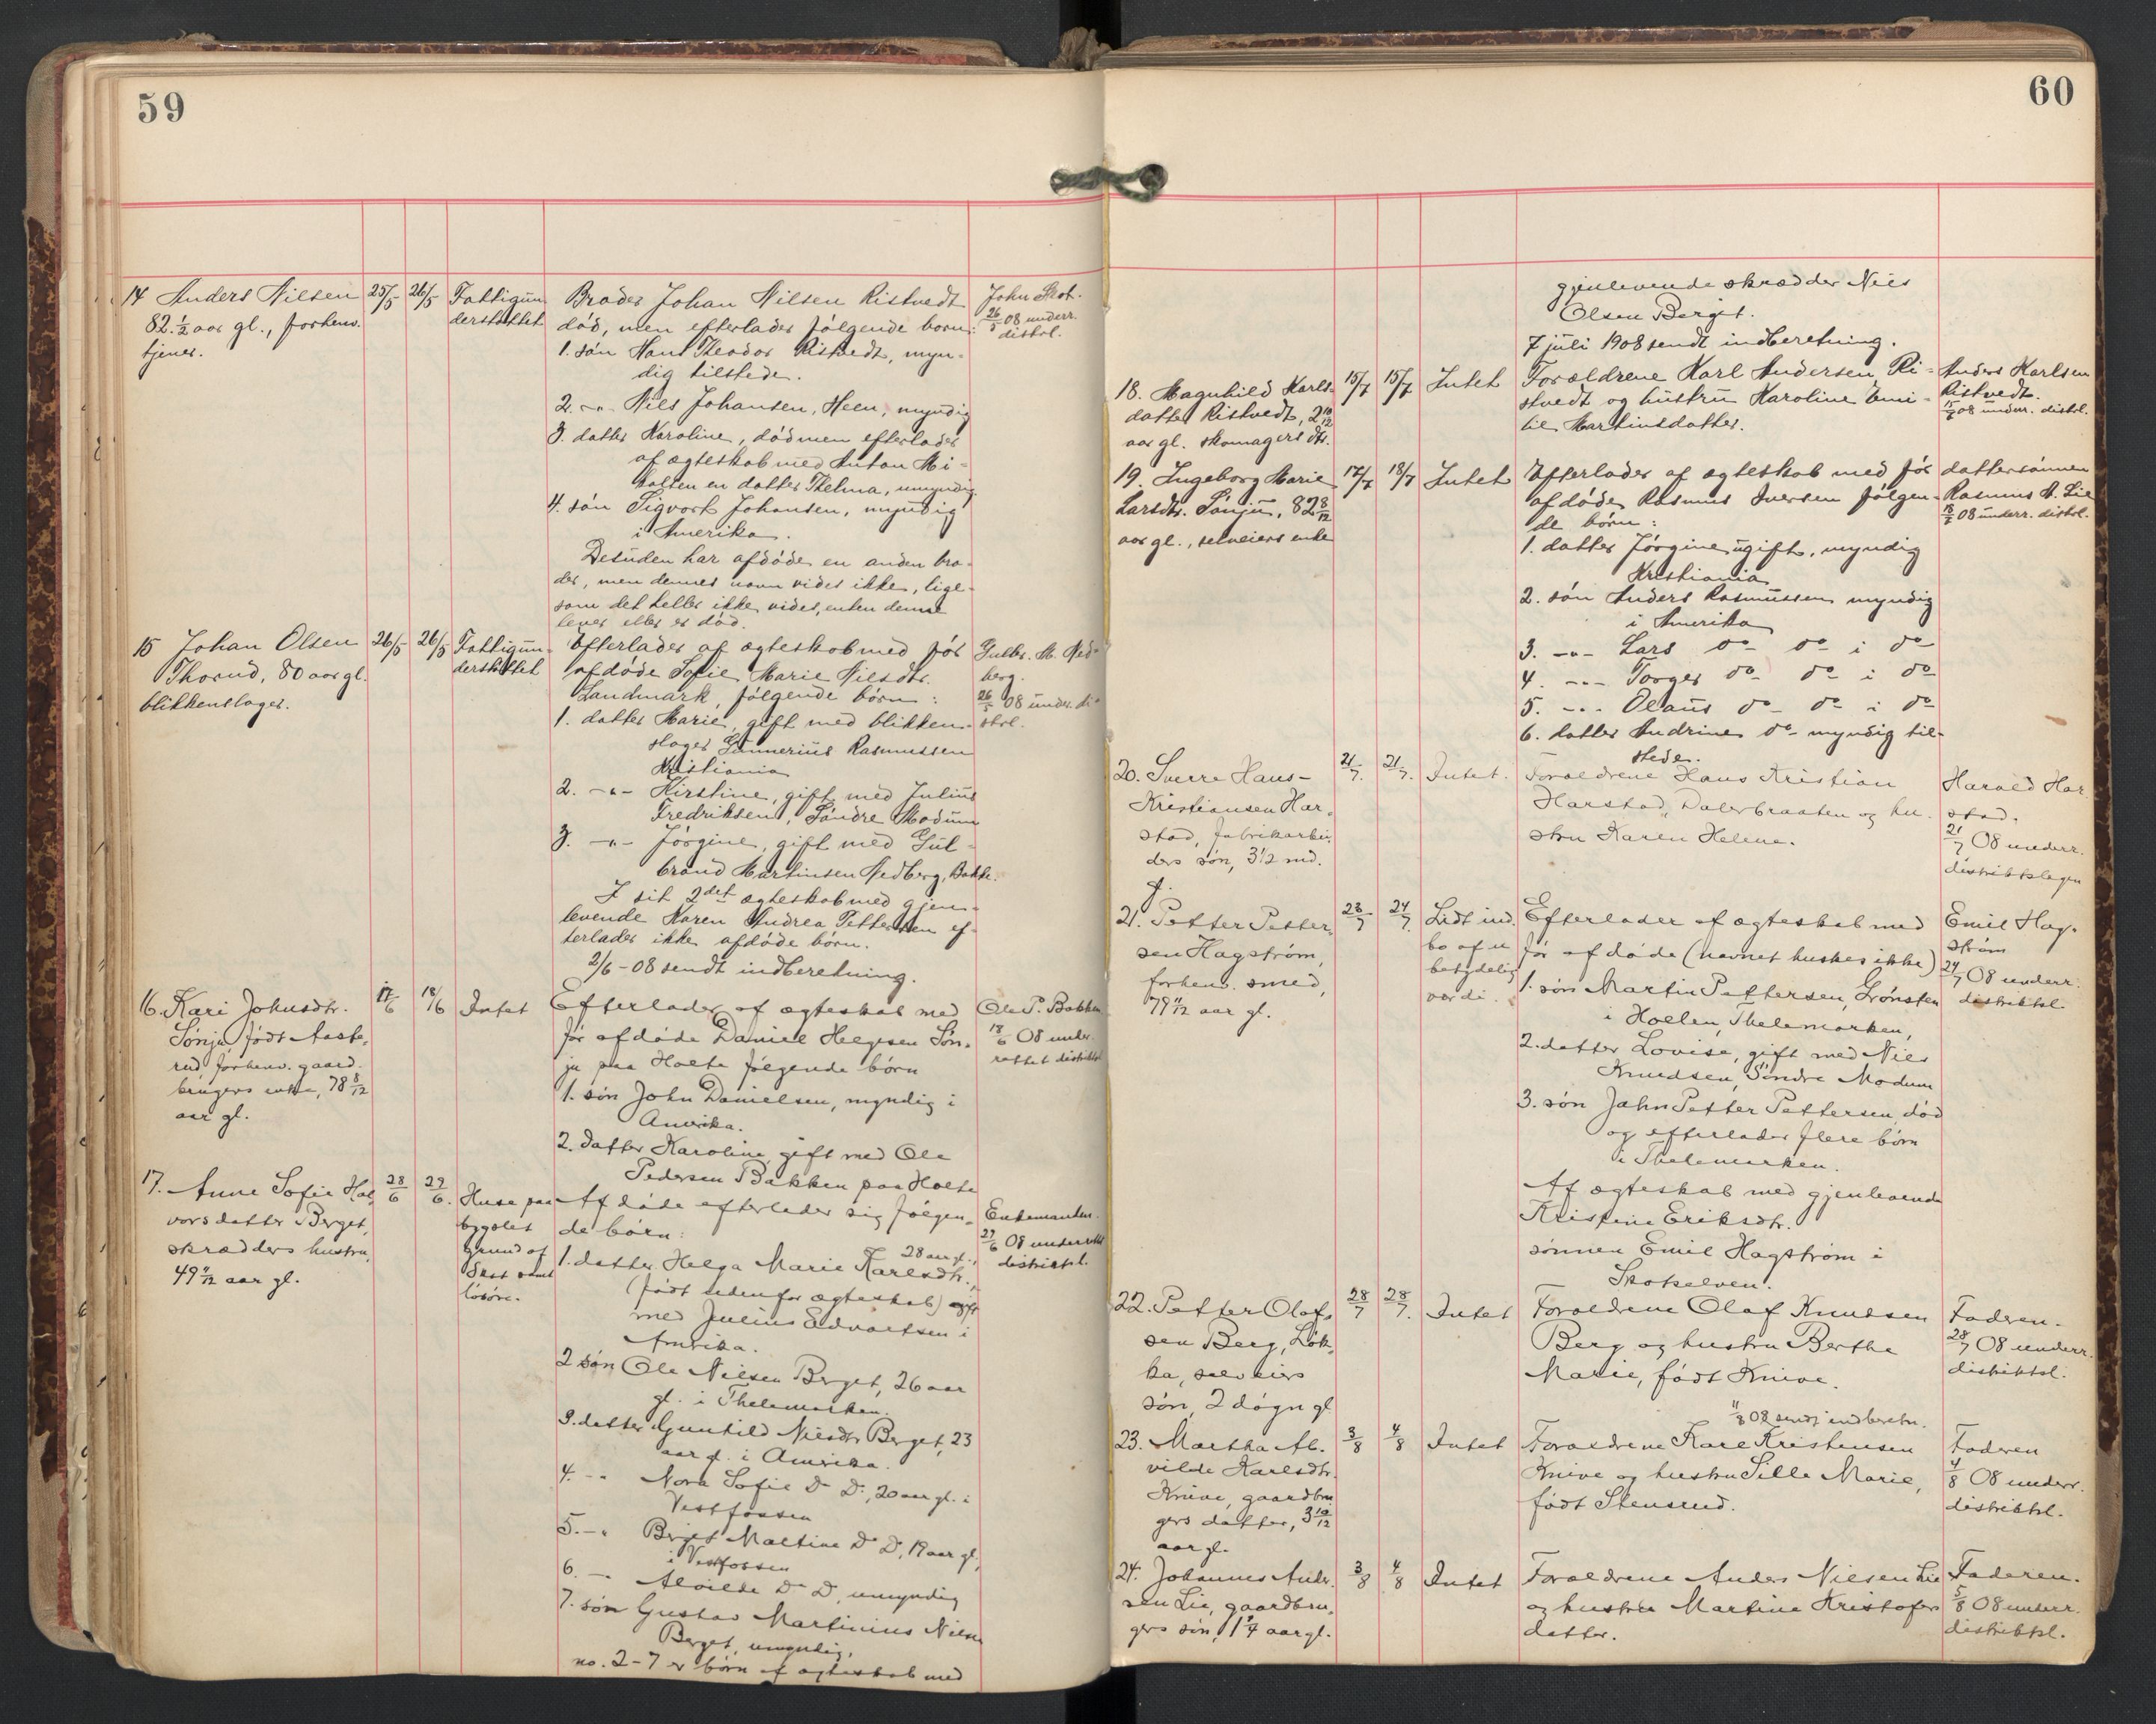 59
14 Anders Nilsen
82 1/2 aar gl., forhenv.
tjener.
25/5
26/5
Fattigun-
derstøttet
Broder Johan Nilsen Ristvedt
død, men efterlader følgende børn:
1. søn Hans Theodor Ristvedt, myn-
dig tilstede.
2. -"- Nils Johansen, Heen, myndig
3. datter Karoline, død men efterlader
af ægteskab med Anton Mi-
kalsen en datter Thelma, umyndig.
4. søn Sigvort Johansen, myndig
i Amerika.
Desuden har afdøde en anden bro-
der, men dennes navn vides ikke, lige-
som det heller ikke vides, enten denne
lever eller er død.
John
26/5 08 underr.
distrl.
15 Johan Olsen
Thorud, 80 aar gl.
blikkenslager.
26/5
26/5
Fattigun-
derstøttet
Efterlader af ægteskab med før
afdøde Sofie Marie Nilsdtr.
Landmark, følgende børn:
1. datter Marie, gift med blikken-
slager Gunnerius Rasmussen
Kristiania
2. -"- Kirstine, gift med Julius
Fredriksen, Søndre Modum
3. -"- Jørgine, gift med Gul-
brand Martinsen Hedberg, Bakke.
I sit 2det ægteskab med gjen-
levende Karen Andrea Pettersen ef-
terlader ikke afdøde børn.
2/6-08 sendt indberetning.
Gulbr. M. Hed-
berg.
26/5 08 underr. di-
strl.
16. Kari Johnsdtr.
Sønju født Aaste-
rud forhenv. gaard-
brugers enke, 78 8/12
aar gl.
17/6
18/6
Intet
Efterlader af ægteskab med
før afdøde Daniel Helgesen Søn-
ju paa Holte følgende børn
1. søn John Danielsen, myndig i
Amerika.
2. datter Karoline gift med Ole
Pedersen Bakken paa Holte
Ole P. Bakken
18/6 08 under-
rettet distriktsl.
17. Anne Sofie Hal-
vorsdatter Berget,
skrædders hustru,
49 11/12 aar gl.
28/6
29/6.
Huse paa
bygslet
grund af
samt
løsøre.
Afdøde efterlader sig følgen-
de børn:
1. datter Helga Marie Karlsdtr., 28 aar gl.,
(født udenfor ægteskab) gift
med Julius Edvartsen i
Amerika.
2 søn Ole Nilsen Berget, 26 aar
gl. i Thelemarken.
3. datter Gunhild Nilsdtr Berget, 23
aar gl. i Amerika.
4. -"- Nora Sofie Do Do, 20 aar gl. i
Vestfossen
5. -"- Berget Maltine Do Do, 19 aar gl.,
i Vestfossen
6. -"- Alvilde Do Do umyndig
7. søn Gustav Martinius Nilsen
Berget, umyndig,
no. 2-7 er børn af ægteskab med
Enkemanden.
29/6 08 underrettet
distriktsl.
60
gjenlevende skrædder Nils
Olsen Berget.
7 juli 1908 sendt indberetning.
18. Magnhild Karls-
datter Ristvedt, 2 10/12
aar gl. skomagers dtr.
15/7
15/7
Intet
Forældrene Karl Andersen Ri-
stvedt og hustru Karoline Emi-
lie Martinsdatter.
Anders Karlsen
Ristvedt.
15/7 08 underr. distrl.
19. Ingeborg Marie
Larsdtr. Sønju, 82 8/12
aar gl., selveiers enke
17/7
18/7
Intet
Efterlader af ægteskab med før
afdøde Rasmus Iversen følgen-
de børn:
1. datter Jørgine ugift, myndig
Kristiania
2. søn Anders Rasmussen myndig
i Amerika
3. -"- Lars do do i do
4. -"- Torger do do i do
5. -"- Olaus do do i do
6. datter Andrine do myndig til-
stede.
dattersønnen
Rasmus A. Lie
18/7 08 underr. distrl.
20. Sverre Hans-
Kristiansen Har-
stad, fabrikarbei-
ders søn, 3 1/2 md.
gl.
21/7.
21/7.
Intet.
Forældrene Hans Kristian
Harstad, Dalerbraaten og hu-
stru Karen Helene.
Harald Har-
stad.
21/7 08 underr.
distriktslægen
21. Petter Petter-
sen Hagstrøm,
forhenv. smed,
79 11/12 aar gl.
23/7
24/7
Lidt ind-
bo af u
betydelig
værdi.
Efterlader af ægteskab med
før afdøde (navnet huskes ikke)
1. søn Martin Pettersen, Grønsten
i Hollen, Thelemarken,
2. datter Lovise, gift med Nils
Knudsen, Søndre Modum
3. søn John Petter Pettersen, død
og efterlader flere børn
i Thelemarken.
Af ægteskab med gjenlevende
Kristine Eriksdtr.
sønnen Emil Hagstrøm i
Skotselven.
Emil Hag-
strøm
24/7 08 underr.
distriktsl.
22. Petter Olaf-
sen Berg, Løk-
ka, selveiers
søn, 2 døgn gl
28/7
28/7.
Intet
Forældrene Olaf Knudsen
Berg og hustru Berthe
Marie, født Knive.
11/8 08 sendt indberetn.
Faderen.
28/7 08 underr.
distriktsl.
23. Martha Al-
vilde Karlsdtr.
Knive, gaardbru-
gers datter, 3 10/12
aar gl.
3/8
4/8
Intet
Forældrene Karl Kristensen
Knive og hustru Sille Marie,
født Stensrud.
Faderen
4/8 08 underr.
distriktsl.
24. Johannes Ander-
sen Lie, gaardbru-
gers søn, 1 1/4 aar gl.
3/8
4/8
Intet
Forældrene Anders Nilsen Lie
og hustru Martine Kristofers
datter.
Faderen.
5/8 08 underr.
distriktsl.